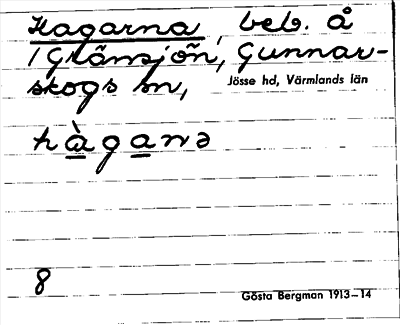 Hagarna, beb. å
/ Gränsjön, Gunnar-
skogs sn, Jösse hd, Värmlands län
hàganə
8
Gösta Bergman 1913–14